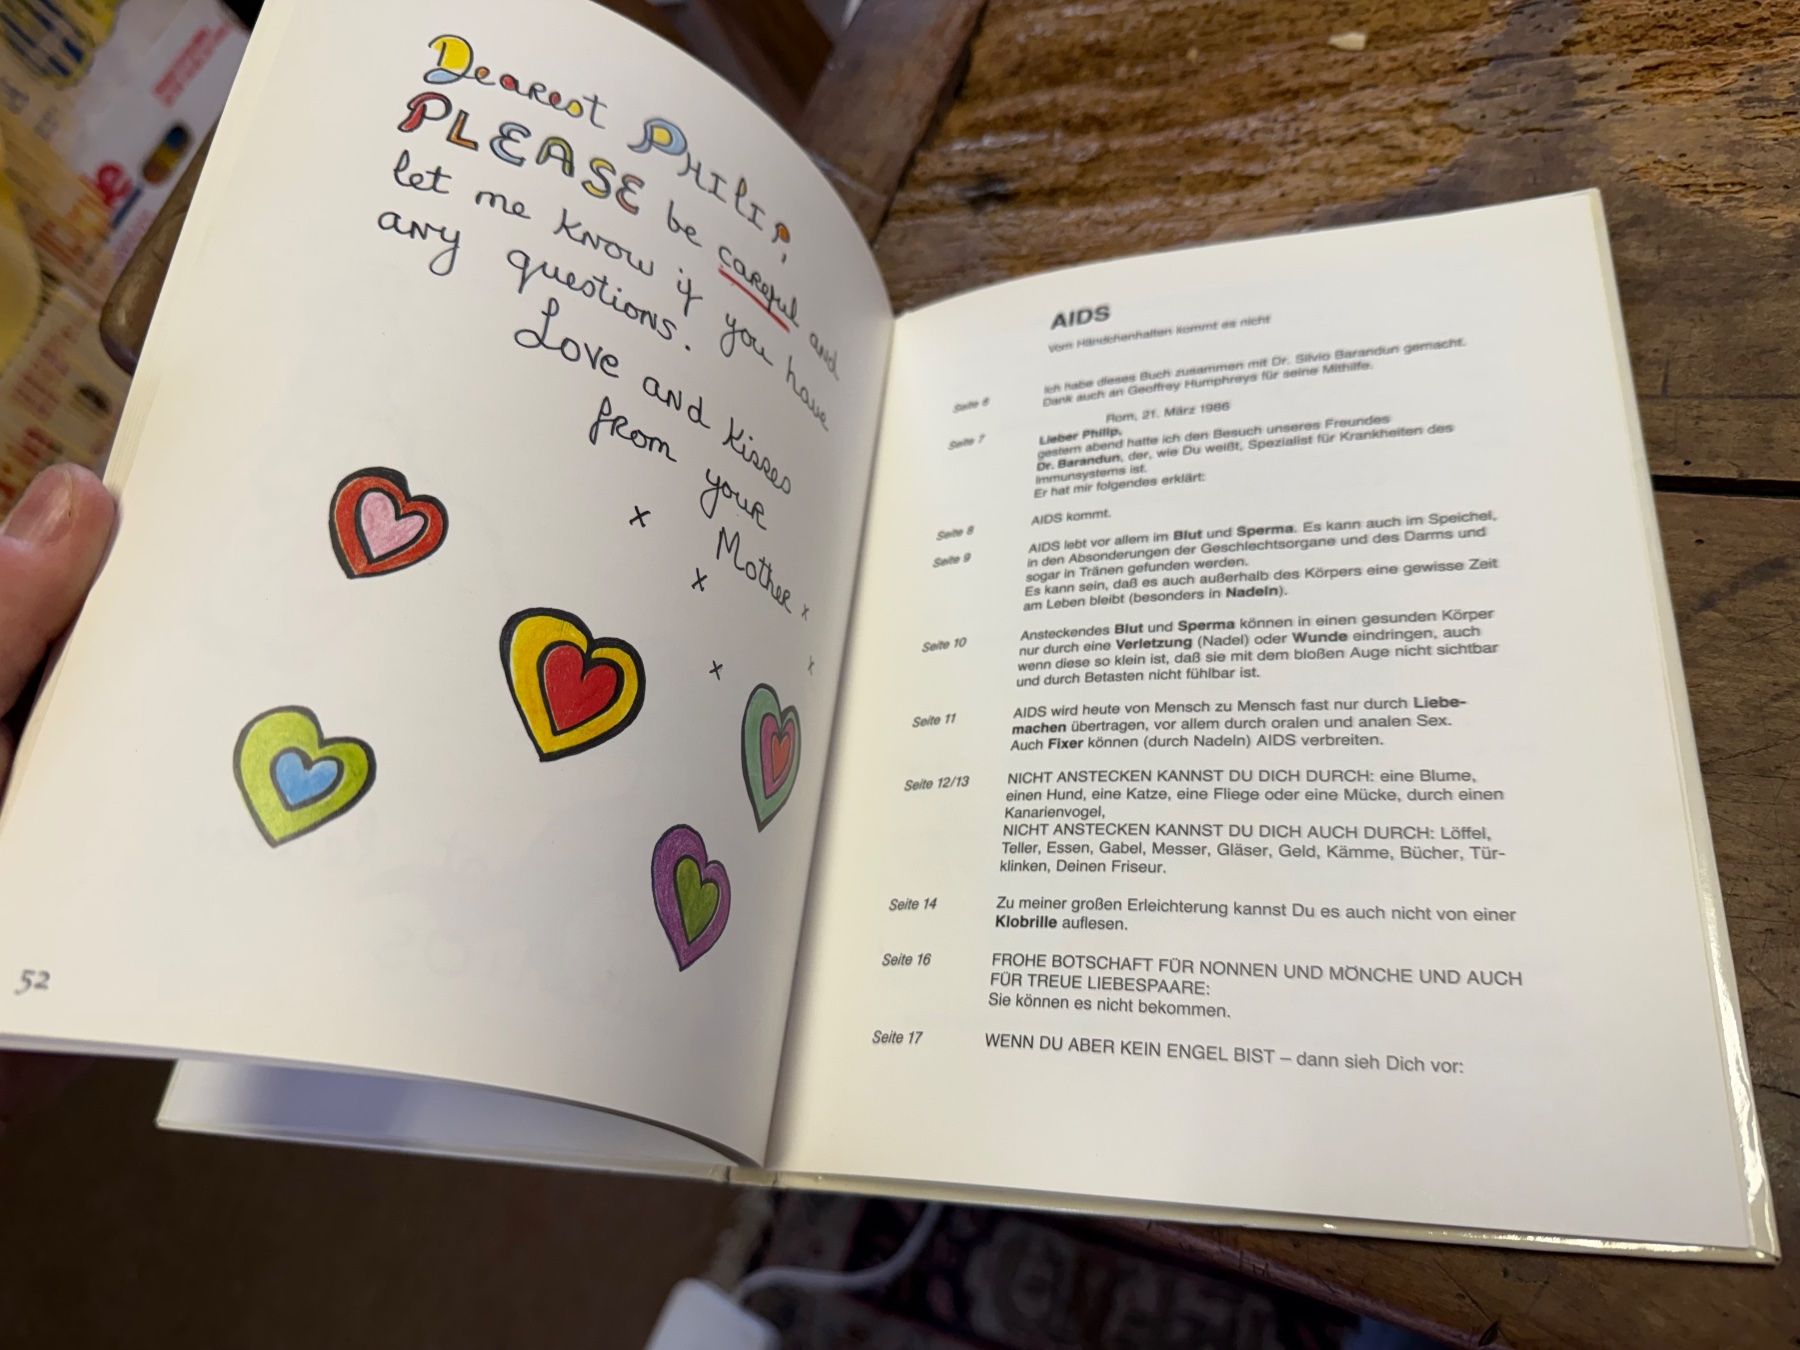 Dearest Philip,
PLEASE be careful and
let me know if you have
any questions.
Love and kisses
from your
Mother
x
x
x
x
x
52
AIDS
Vom Händchenhalten kommt es nicht
Seite 6
Ich habe dieses Buch zusammen mit Dr. Silvio Barandun gemacht.
Dank auch an Geoffrey Humphreys für seine Mithilfe.
Rom, 21. März 1986
Seite 7
Lieber Philip,
gestern abend hatte ich den Besuch unseres Freundes
Dr. Barandun, der, wie Du weißt, Spezialist für Krankheiten des
Immunsystems ist.
Er hat mir folgendes erklärt:
Seite 8
AIDS kommt.
Seite 9
AIDS lebt vor allem im Blut und Sperma. Es kann auch im Speichel,
in den Absonderungen der Geschlechtsorgane und des Darms und
sogar in Tränen gefunden werden.
Es kann sein, daß es auch außerhalb des Körpers eine gewisse Zeit
am Leben bleibt (besonders in Nadeln).
Seite 10
Ansteckendes Blut und Sperma können in einen gesunden Körper
nur durch eine Verletzung (Nadel) oder Wunde eindringen, auch
wenn diese so klein ist, daß sie mit dem bloßen Auge nicht sichtbar
und durch Betasten nicht fühlbar ist.
Seite 11
AIDS wird heute von Mensch zu Mensch fast nur durch Liebe-
machen übertragen, vor allem durch oralen und analen Sex.
Auch Fixer können (durch Nadeln) AIDS verbreiten.
Seite 12/13
NICHT ANSTECKEN KANNST DU DICH DURCH: eine Blume,
einen Hund, eine Katze, eine Fliege oder eine Mücke, durch einen
Kanarienvogel,
NICHT ANSTECKEN KANNST DU DICH AUCH DURCH: Löffel,
Teller, Essen, Gabel, Messer, Gläser, Geld, Kämme, Bücher, Tür-
klinken, Deinen Friseur.
Seite 14
Zu meiner großen Erleichterung kannst Du es auch nicht von einer
Klobrille auflesen.
Seite 16
FROHE BOTSCHAFT FÜR NONNEN UND MÖNCHE UND AUCH
FÜR TREUE LIEBESPAARE:
Sie können es nicht bekommen.
Seite 17
WENN DU ABER KEIN ENGEL BIST – dann sieh Dich vor: